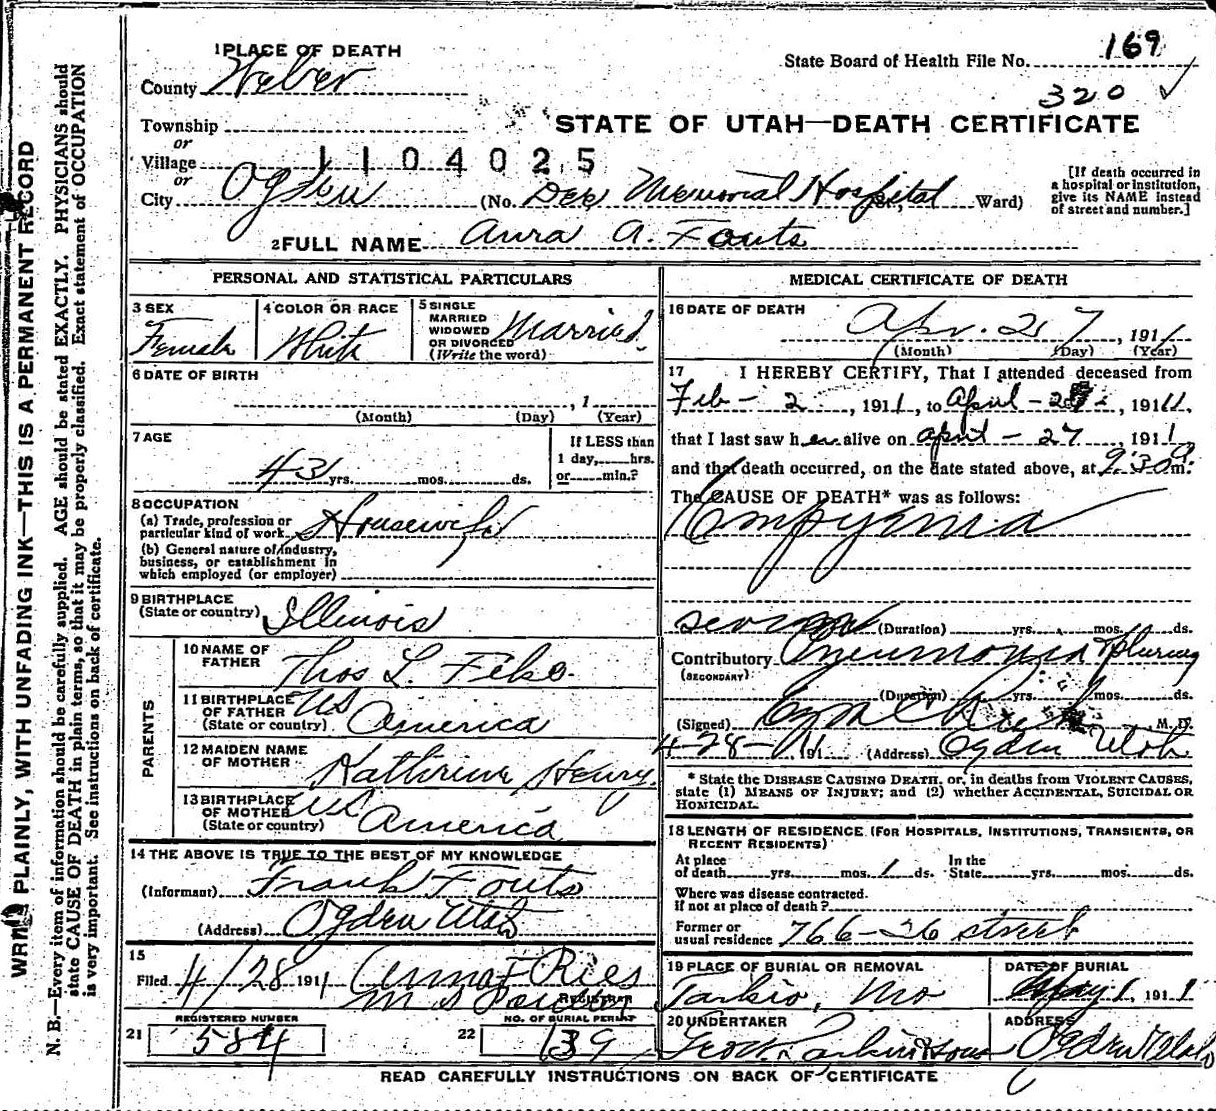 WRITE PLAINLY, WITH UNFADING INK—THIS IS A PERMANENT RECORD
N. B.—Every item of information should be carefully supplied. AGE should be stated EXACTLY. PHYSICIANS should
state CAUSE OF DEATH in plain terms, so that it may be properly classified. Exact statement of OCCUPATION
is very important. See instructions on back of certificate.
1 PLACE OF DEATH
County Weber
Township
or
Village
or
City Ogden
1104025
State Board of Health File No. 169
320
STATE OF UTAH—DEATH CERTIFICATE
(No. Dee Memorial Hospital St., Ward)
[If death occurred in
a hospital or institution,
give its NAME instead
of street and number.]
2 FULL NAME Aura A. Fouts
PERSONAL AND STATISTICAL PARTICULARS
3 SEX
Female
4 COLOR OR RACE
White
5 SINGLE
MARRIED
WIDOWED
OR DIVORCED
(Write the word)
Married
6 DATE OF BIRTH
, 1
(Month) (Day) (Year)
7 AGE
43 yrs. mos. ds.
If LESS than
1 day, hrs.
or min.?
8 OCCUPATION
(a) Trade, profession or
particular kind of work Housewife
(b) General nature of industry,
business, or establishment in
which employed (or employer)
9 BIRTHPLACE
(State or country) Illinois
PARENTS
10 NAME OF
FATHER Thos L.
11 BIRTHPLACE
OF FATHER
(State or country) US America
12 MAIDEN NAME
OF MOTHER Kathrine Henry
13 BIRTHPLACE
OF MOTHER
(State or country) US America
14 THE ABOVE IS TRUE TO THE BEST OF MY KNOWLEDGE
(Informant) Frank Fouts
(Address) Ogden Utah
15
Filed 4/28 1911 Anna F Ries
REGISTRAR
REGISTERED NUMBER
21 584
NO. OF BURIAL PERMIT
22 139
MEDICAL CERTIFICATE OF DEATH
16 DATE OF DEATH
Apr. 27, 1911
(Month) (Day) (Year)
17 I HEREBY CERTIFY, That I attended deceased from
Feb - 2, 1911, to April - 27, 1911,
that I last saw her alive on April - 27, 1911
and that death occurred, on the date stated above, at 9:30 a m.
The CAUSE OF DEATH* was as follows:
Empyema
(Duration) yrs. mos. ds.
Contributory Pneumonia & pleurisy
(SECONDARY)
(Duration) yrs. mos. ds.
(Signed) M. D.
4-28-1911 (Address) Ogden Utah
* State the DISEASE CAUSING DEATH, or, in deaths from VIOLENT CAUSES,
state (1) MEANS OF INJURY; and (2) whether ACCIDENTAL, SUICIDAL OR
HOMICIDAL.
18 LENGTH OF RESIDENCE (FOR HOSPITALS, INSTITUTIONS, TRANSIENTS, OR
RECENT RESIDENTS)
At place
of death yrs. mos. 1 ds.
In the
State yrs. mos. ds.
Where was disease contracted.
if not at place of death?
Former or
usual residence 766-26 street
19 PLACE OF BURIAL OR REMOVAL
Tarkio, Mo
DATE OF BURIAL
May 1 1911
20 UNDERTAKER
ADDRESS
Ogden Utah
READ CAREFULLY INSTRUCTIONS ON BACK OF CERTIFICATE